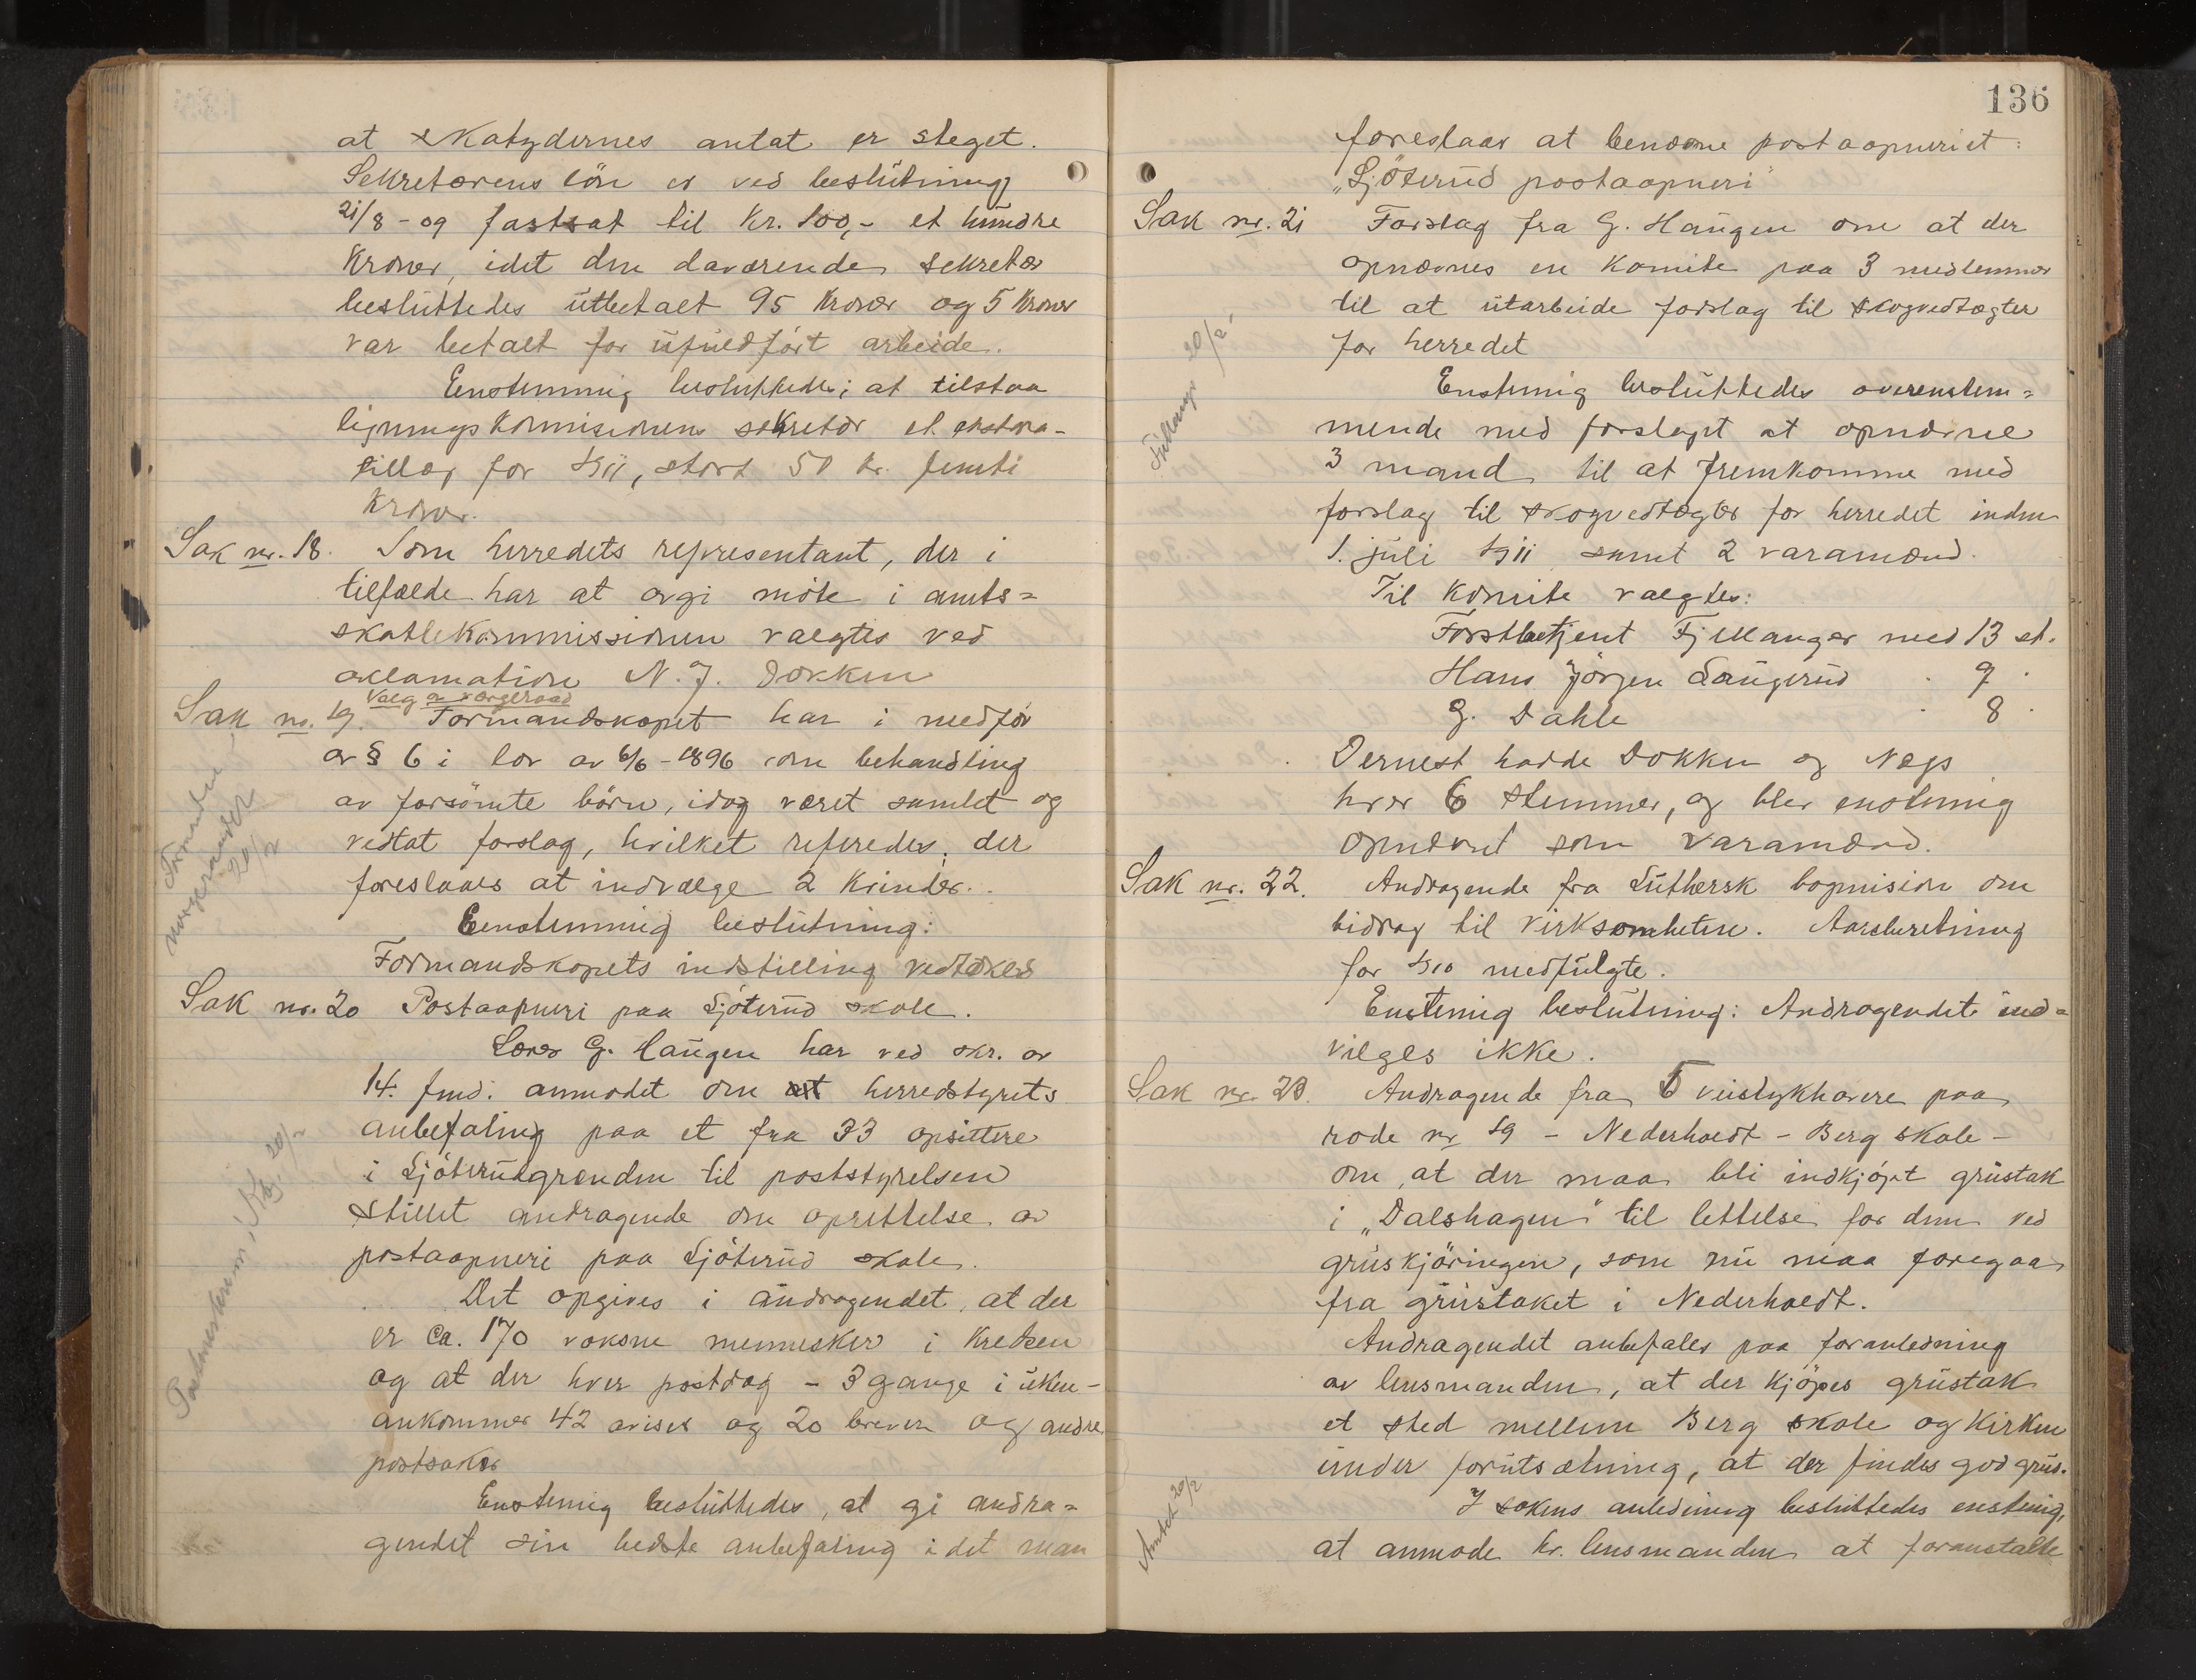 at skatydernes antat er steget.
Sekretærens lön er ved beslutning
21/8-09 fastsat til kr. 100,- et hundre
kroner, idet den daværende sekretær
besluttedes utbetalt 95 kroner og 5 kroner
var betalt for ufuldført arbeide.
Eenstemmig besluttedes; at tilstaa
ligningskommisionens sekretær et extra-
tillæg for 1911, stort 50 kr. femti
kroner.
Sak nr. 18. Som herredets representant, der i
tilfælde har at avgi möte i amts=
skattekommissionen valgtes ved
acclamation N. J. Dokken
Valg av værgeraad
Sak nr. 19. Formandskapet har i medför
av § 6 i lov av 6/6-1896 om behandling
av forsömte börn, idag været samlet og
vedtat forslag, hvilket referedes, der
foreslaaes at indvælge 2 kvinder.
Formanden
vergeraadet
20/2
Eenstemmig beslutning:
Formandskapets indstilling vedtokes
Sak nr. 20 Postaapneri paa Sjöterud skole.
Lærer G. Haugen har ved skr. av
14. fmd. anmodet om at herredstyrets
anbefaling paa et fra 33 opsittere
i Sjöterudgrenden til poststyrelsen
stillet andragende om oprettelse av
postaapneri paa Sjöterud skole.
Postmesteren i Kbg. 20/2
Det opgives i andragendet, at der
er ca. 170 voksne mennesker i kredsen
og at der hver postdag - 3 gange i uken -
ankommer 42 aviser og 20 breve og andre
postsaker
Enstemig besluttedes, at gi andra=
gendet sin bedste anbefaling idet man
136
foreslaar at benævne postaapneriet:
"Sjöterud postaapneri"
Sak nr. 21 Forslag fra G. Haugen om at der
opnævnes en komite paa 3 medlemmer
til at utarbeide forslag til skogvedtægter
for herredet
Fjellanger 20/2
Enstemig besluttedes overenstem=
mende med forslaget at opnævne
3 mand til at fremkomme med
forslag til skogvedtægter for herredet inden
1. juli 1911 samt 2 varamænd.
Til komite valgtes:
Forstbetjent Fjellanger med 13 st.
Hans Jörgen Saugerud " 9 "
G. Dahle " 8 "
Dernest hadde Dokken og Næss
hver 6 stemmer, og blev enstemig
opnævnt som varamænd.
Sak nr. 22. Andragende fra Luthersk bogmision om
bidrag til virksomheten. Aarsberetning
for 1910 medfulgte.
Enstemig beslutning: Andragendet ind=
vilges ikke.
Sak nr. 23. Andragende fra 5 veistykhavere paa
rode nr 19 - Nederhaedt - Berg skole -
om, at der maa bli indkjöpt grustak
i "Dalshagen" til lettelse for dem ved
gruskjöringen, som nu maa foregaa
fra grustaket i Nederhaedt.
Andragendet anbefales paa foranledning
av lensmanden, at der kjöpes grustak
et sted mellem Berg skole og kirken
under forutsætning, at der findes god grus.
I sakens anledning besluttedes enstemig,
at anmode hr. lensmanden at foranstalte
Amtet 20/2